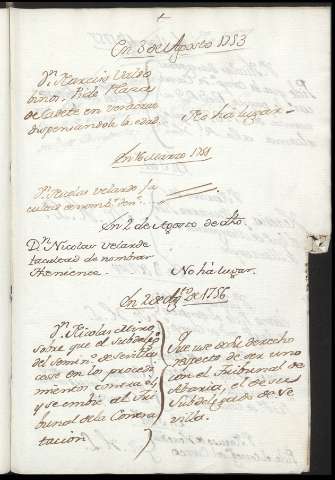 En 3 de Agosto 1753
Dn. Narciso Valdo
binos. Pide Plaza
de Cadete en Veracruz
dispensandole la edad.
No ha lugar
En 16 Marzo 1751
Dn. Nicolas Velarde fa
cultad de nombrar
En 2 de Agosto de dho.
Dn. Nicolas Velarde
facultad de nombrar
Theniente.
No ha lugar.
En 2 de Agto. de 1756
Dn. Nicolas
sobre que el Subdelego
del Semino. de Sevilla
cese en los procedi
mientos contra el
y se embie al Tri
bunal de la Contra
tacion
Que use de su derecho
respecto de ser uno
con el Tribunal de
Maria, el de su
Subdelegado de Se
villa.